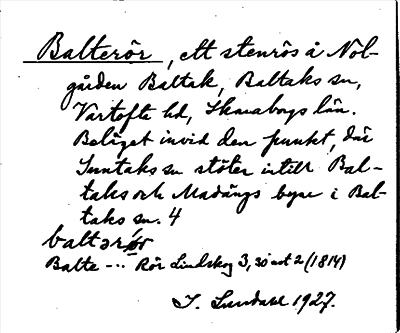 Balterör, ett stenrös å Nol-
gården Baltak, Baltaks sn,
Vartofta hd, Skaraborgs län.
Beläget invid den punkt, där
Suntaks sn stöter intill Bal-
taks och Madängs byar i Bal-
taks sn. 4
balterör
Balte --- Rör Lindskog 3, 30 not 2 (1814)
I. Lundahl 1927.